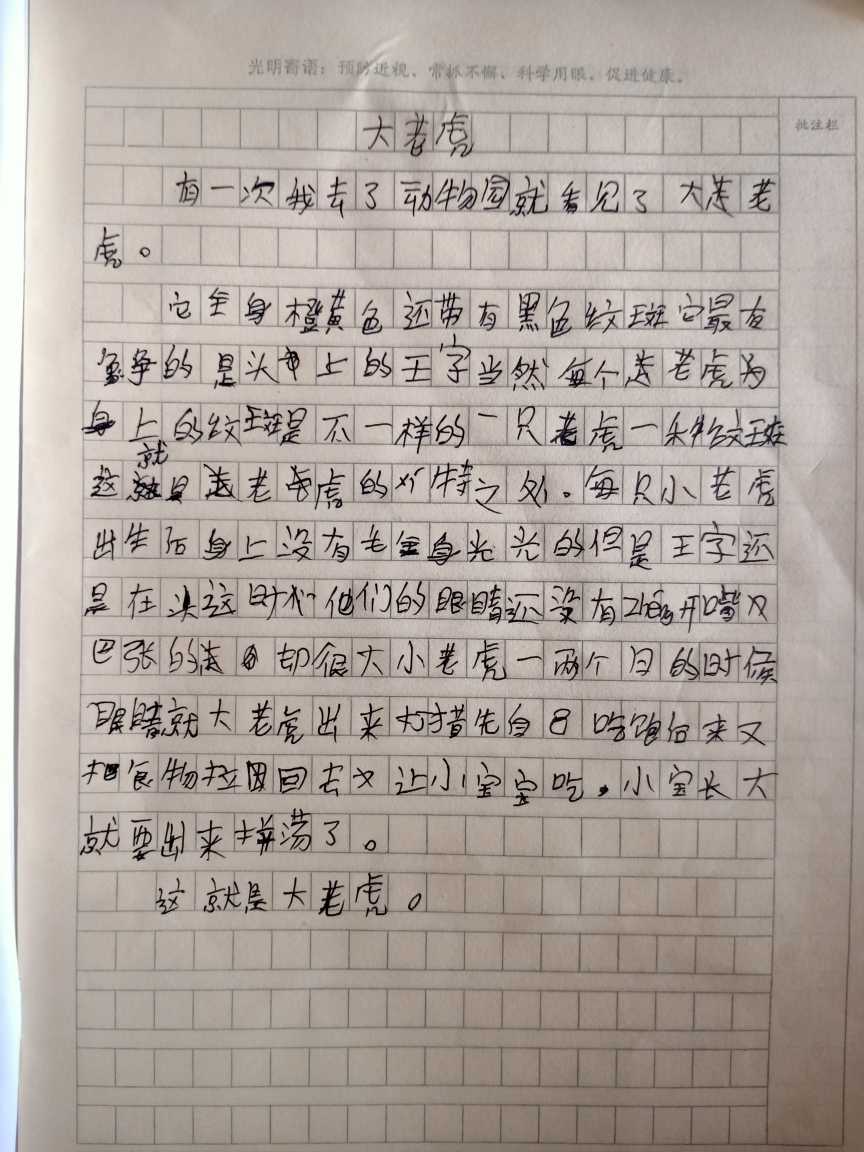 光明寄语：预防近视、常抓不懈、科学用眼、促进健康。
批注栏
大老虎
有一次我去了动物园就看见了大老
虎。
它全身橙黄色还带有黑色纹斑它最有
争的是头上的王字当然每个老虎为
身上的纹斑是不一样的一只老虎一种纹斑
这就是老虎的特之处。每只小老虎
出生后身上没有毛全身光光的但是王字还
是在头这时他们的眼睛还没有zheng开嘴
巴张的却很大小老虎一两个月的时候
眼睛就大老虎出来打猎先自己吃饱后来又
把食物拉回去又让小宝宝吃。小宝长大
就要出来拼荡了。
这就是大老虎。